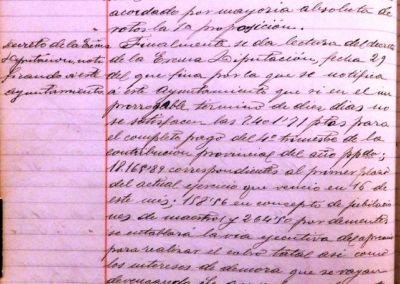 acordado por mayoria absoluta de
votos la 1ª proposición.
Decreto de la Excma
Diputación, noti
ficando á este
ayuntamiento
Finalmente se da lectura del decreto
de la Excma Diputación, fecha 29
del que fina por la que se notifica
á este Ayuntamiento que si en el im
prorrogable termino de diez dias no
se satisfacen las 7401'71 ptas para
el completo pago del 4º trimestre de la
contribución provincial del año ppdo;
18.165'89 correspondientes al primer plazo
del actual ejercicio que vencio en 16 de
este mes; 158'56 en concepto de jubilacio
nes de maestros y 264'50 por dementes
se entablará la via ejecutiva de apremio
para realizar el cobro total asi como
los intereses de demora que se vayan
devengando